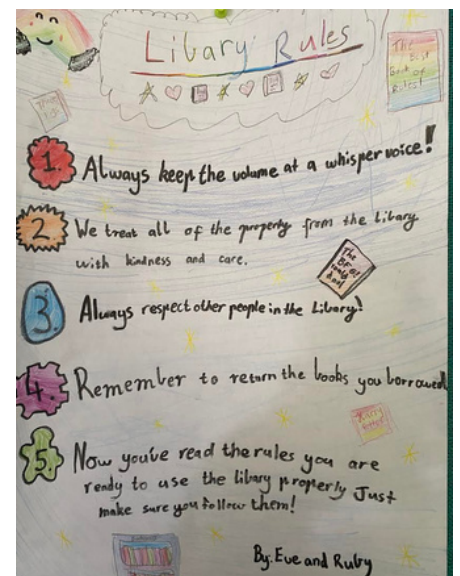 Libary Rules
The
Best
Book of
Rules!
1. Always keep the volume at a whisper voice!
2. We treat all of the property from the Library
with kindness and care.
The
BFG!
roald
Daal
3. Always respect other people in the Library!
4. Remember to return the books you borrowed
Harry
Potter
5. Now you've read the rules you are
ready to use the library properly Just
make sure you follow them!
By: Eve and Ruby